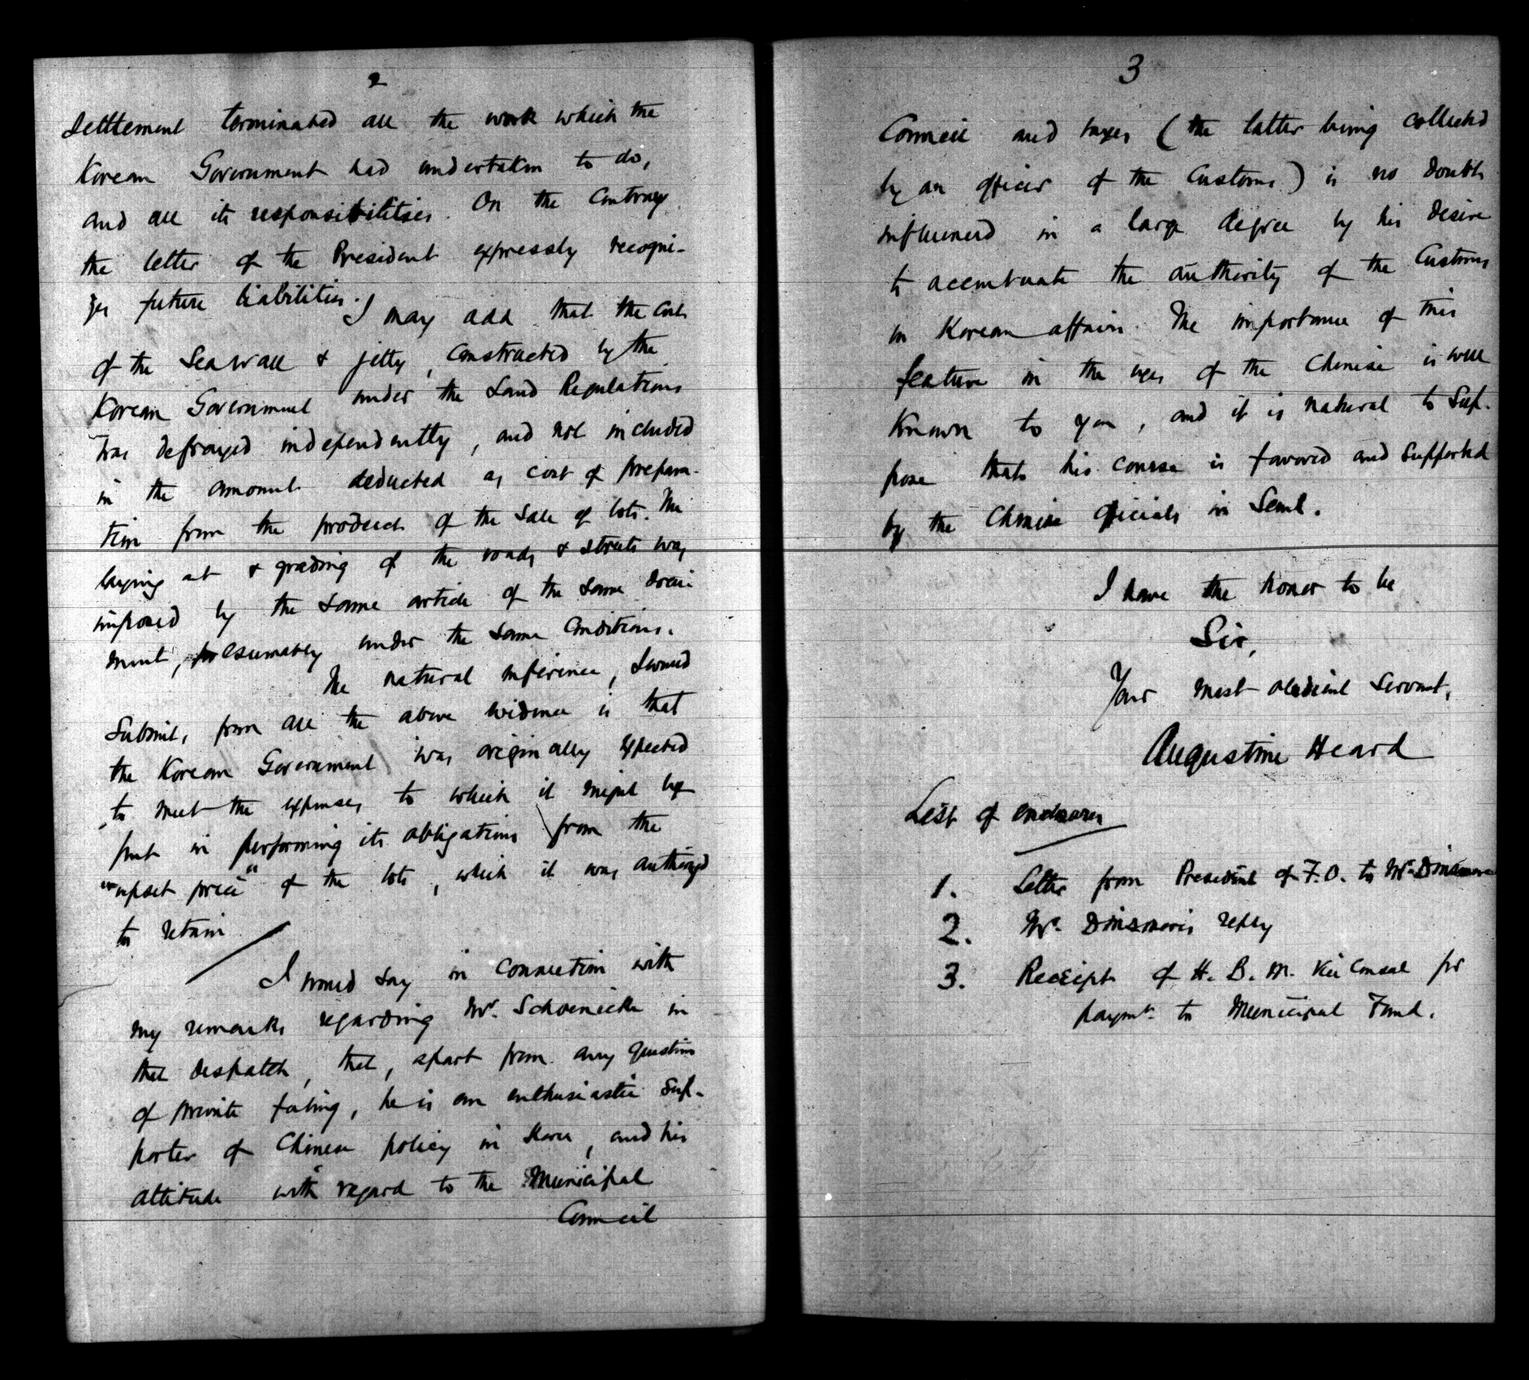 2
Settlement terminated all the work which the
Korean Government had undertaken to do,
and all its responsibilities. On the Contrary
the letter of the President expressly recogni-
zes future liabilities.
I may add that the cost
of the Sea wall & jetty, constructed by the
Korean Government under the Land Regulations
was defrayed independently, and not included
in the amount deducted as cost of prepara-
tion from the product of the Sale of lots. The
laying out & grading of the roads & streets was
imposed by the same article of the same docu-
ment, presumably under the same Conditions.
The natural inference, I would
Submit, from all the above evidence is that
the Korean Government was originally expected
to meet the expenses to which it might be
put in performing its obligations from the
"upset price" of the lots, which it was authorized
to retain
I would say in connection with
my remarks regarding Mr. Schoenicke in
that despatch, that, apart from any question
of private feeling, he is an enthusiastic Sup-
porter of Chinese policy in Korea, and his
attitude with regard to the Municipal
Council
3
Council and taxes (the latter being collected
by an officer of the Customs) is no doubt
influenced in a large degree by his desire
to accentuate the authority of the Customs
in Korean affairs. The importance of this
feature in the eyes of the Chinese is well
Known to you, and it is natural to Sup-
pose that his course is favored and supported
by the Chinese officials in Seoul.
I have the honor to be
Sir,
Your most obedient Servant,
Augustine Heard
List of enclosures
1. Letter from President of F.O. to Mr. Dinsmore
2. Mr. Dinsmore's reply
3. Receipt of H. B. M. Vice Consul for
paymt. to Municipal Fund.